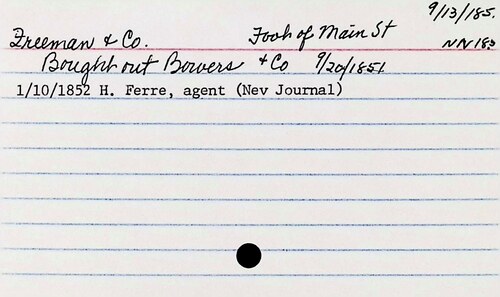 9/13/185
Freeman & Co. Foot of Main St NN 185
Bought out Bowers & Co 9/20/1851
1/10/1852 H. Ferre, agent (Nev Journal)